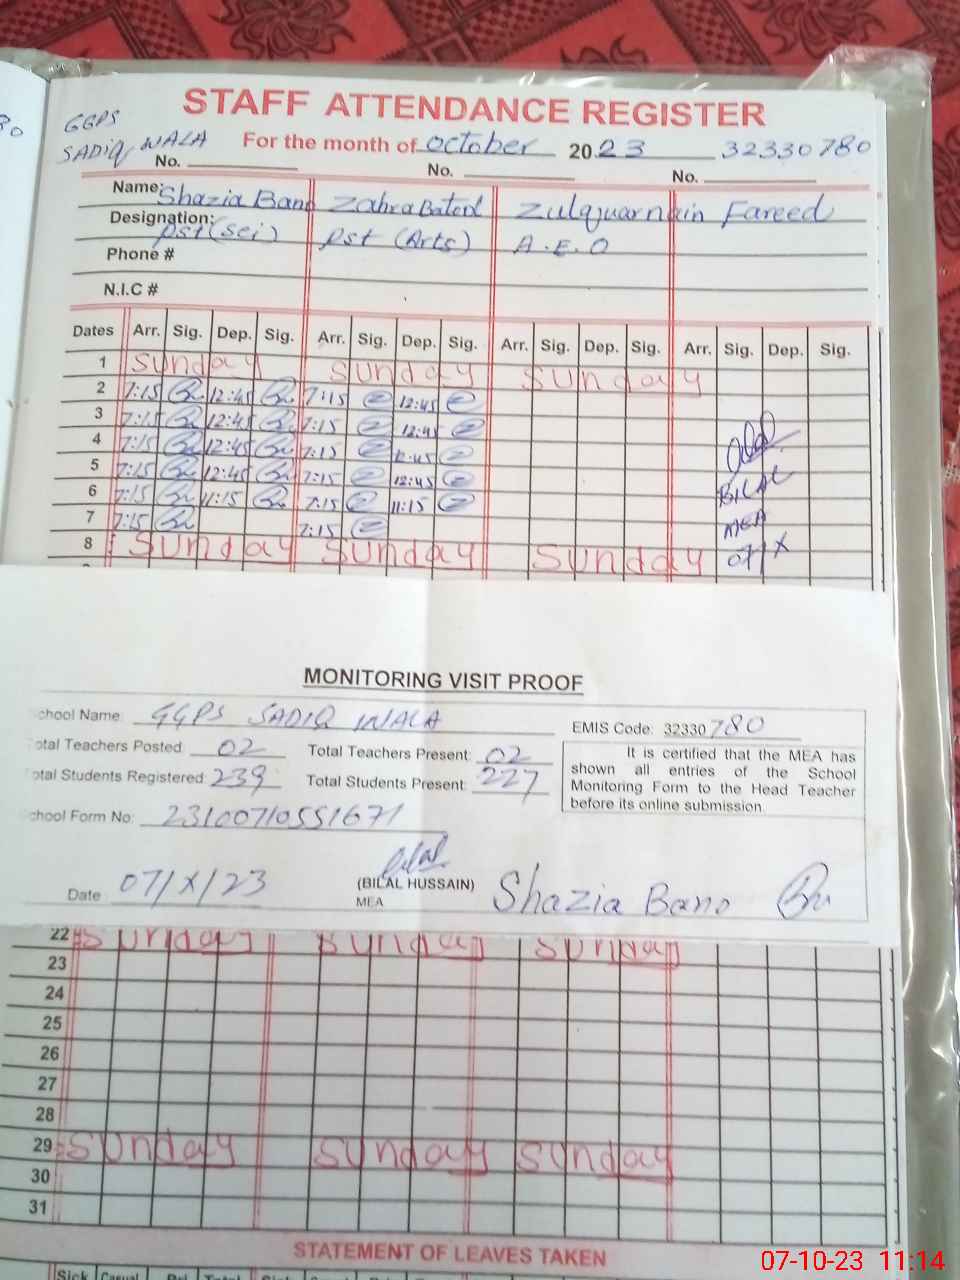 30
GGPS
SADIQ WALA
STAFF ATTENDANCE REGISTER
For the month of October 2023 32330780
No. No. No.
Name: Shazia Bano Zahra Batool Zulqarnain Fareed
Designation: Pst (sci) Pst (Arts) A.E.O
Phone #
N.I.C #
Dates Arr. Sig. Dep. Sig. Arr. Sig. Dep. Sig. Arr. Sig. Dep. Sig. Arr. Sig. Dep. Sig.
1 Sunday Sunday Sunday
2 7:15 12:45 7:15 12:45
3 7:15 12:45 7:15 12:45
4 7:15 12:45 7:15 12:45
5 7:15 12:45 7:15 12:45
6 7:15 11:15 7:15 11:15
7 7:15 7:15
8 Sunday Sunday Sunday
Bilal
BILAL
MEA
07/X
MONITORING VISIT PROOF
chool Name: GGPS SADIQ WALA EMIS Code: 32330780
otal Teachers Posted: 02 Total Teachers Present: 02
otal Students Registered: 239 Total Students Present: 227
It is certified that the MEA has
shown all entries of the School
Monitoring Form to the Head Teacher
before its online submission.
chool Form No: 23100710551671
Date 07/X/23 Bilal
(BILAL HUSSAIN)
MEA
Shazia Bano
22 Sunday Sunday Sunday
23
24
25
26
27
28
29 Sunday Sunday Sunday
30
31
STATEMENT OF LEAVES TAKEN
Sick Casual
07-10-23 11:14